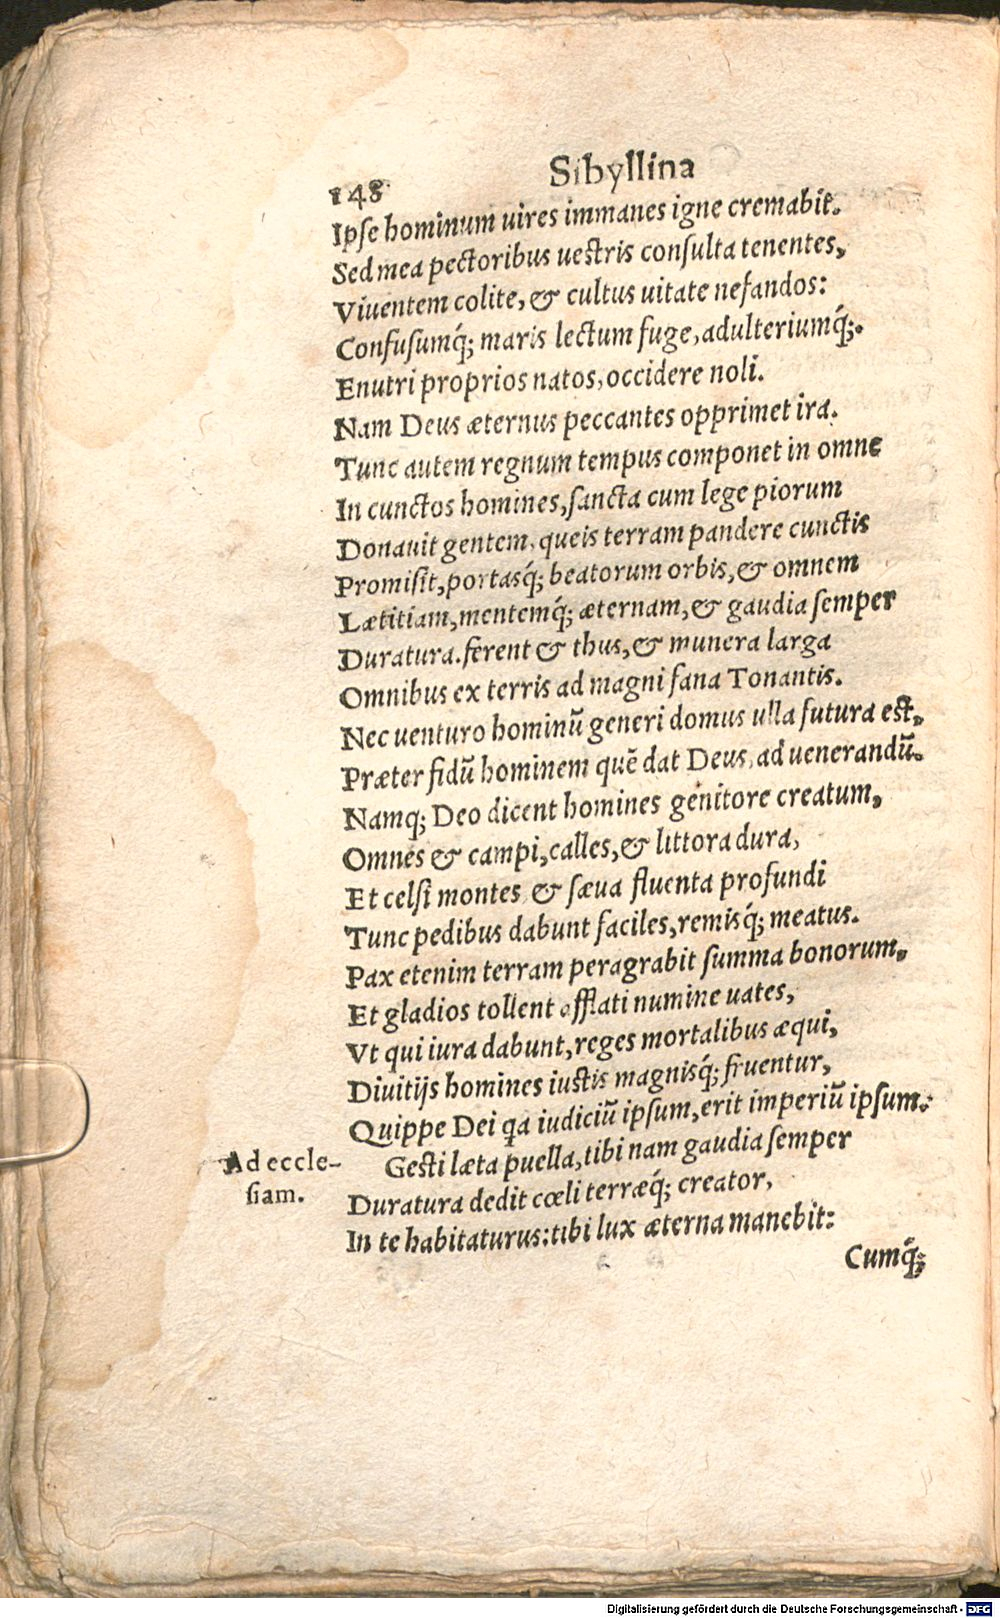 148 Sibyllina
Ipse hominum uires immanes igne cremabit.
Sed mea pectoribus uestris consulta tenentes,
Viuentem colite, & cultus uitate nefandos:
Confusumq́; maris lectum fuge, adulteriumq́;.
Enutri proprios natos, occidere noli.
Nam Deus æternus peccantes opprimet ira.
Tunc autem regnum tempus componet in omne
In cunctos homines, sancta cum lege piorum
Donauit gentem, queis terram pandere cunctis
Promisit, portasq́; beatorum orbis, & omnem
Lætitiam, mentemq́; æternam, & gaudia semper
Duratura. ferent & thus, & munera larga
Omnibus ex terris ad magni fana Tonantis.
Nec uenturo hominũ generi domus ulla futura est,
Præter fidũ hominem quẽ dat Deus, ad uenerandũ.
Namq; Deo dicent homines genitore creatum,
Omnes & campi, calles, & littora dura,
Et celsi montes & sæua fluenta profundi
Tunc pedibus dabunt faciles, remisq́; meatus.
Pax etenim terram peragrabit summa bonorum,
Et gladios tollent afflati numine uates,
Vt qui iura dabunt, reges mortalibus æqui,
Diuitijs homines iustis magnisq́; fruentur,
Quippe Dei qa iudiciũ ipsum, erit imperiũ ipsum.
Ad eccle-
siam.
Gesti læta puella, tibi nam gaudia semper
Duratura dedit cœli terræq́; creator,
In te habitaturus: tibi lux æterna manebit:
Cumq́;
Digitalisierung gefördert durch die Deutsche Forschungsgemeinschaft - DFG